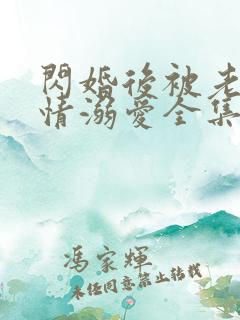 閃婚後被老
情溺愛全集
馮家輝
未经同意禁止转载